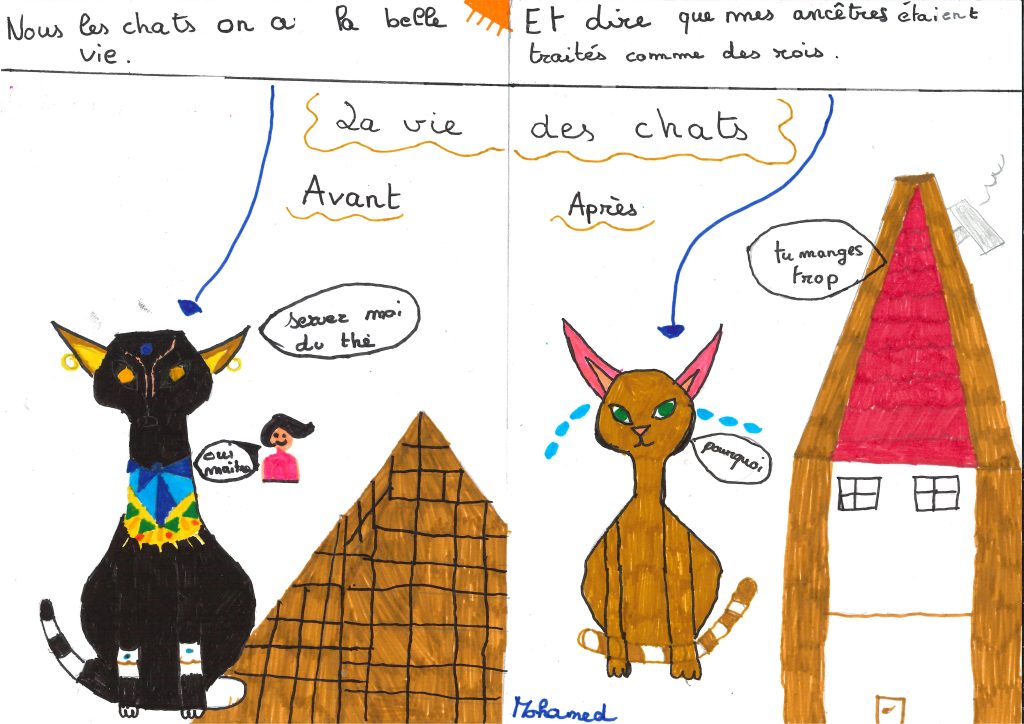 Nous les chats on a la belle
vie.
Et dire que mes ancêtres étaient
traités comme des rois.
La vie des chats
Avant
Après
servez moi
du thé
oui
maître
tu manges
trop
pourquoi
Mohamed